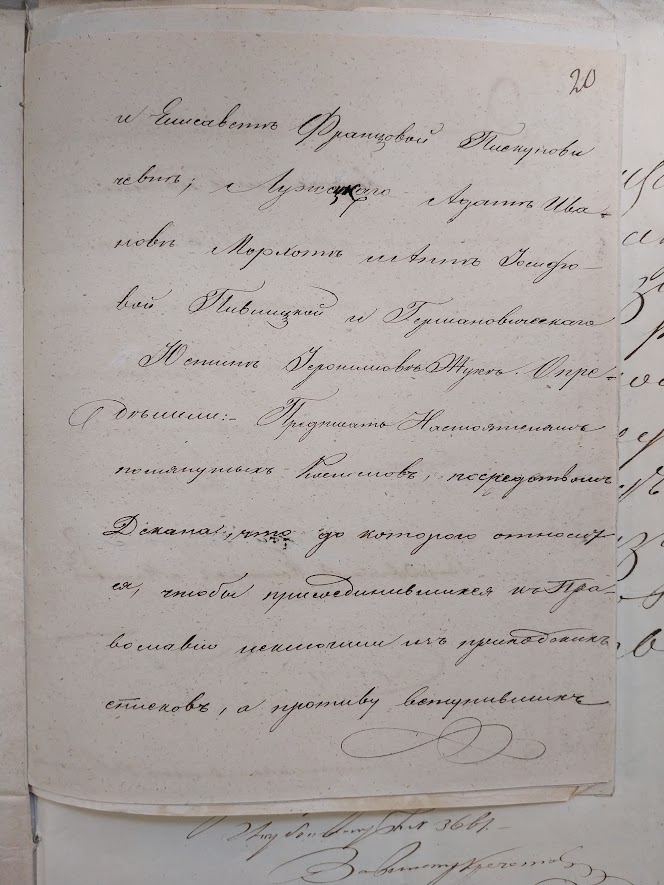 20
и Елисаветъ Францовой Пискунови
чевнъ; Лужецкаго Адамъ Ива-
новъ Морхотъ и Аннъ Іосифо-
вой Пивницкой и Германовическаго
Юстинъ Іеронимовъ Жукъ. Опре-
дѣлили:- Предписать Настоятелямъ
помянутыхъ Костеловъ, посредствомъ
Декана, что до котораго относит
ся, чтобы присоединившихся къ Пра-
вославію исключили изъ приходскихъ
списковъ, а противу вступившихъ